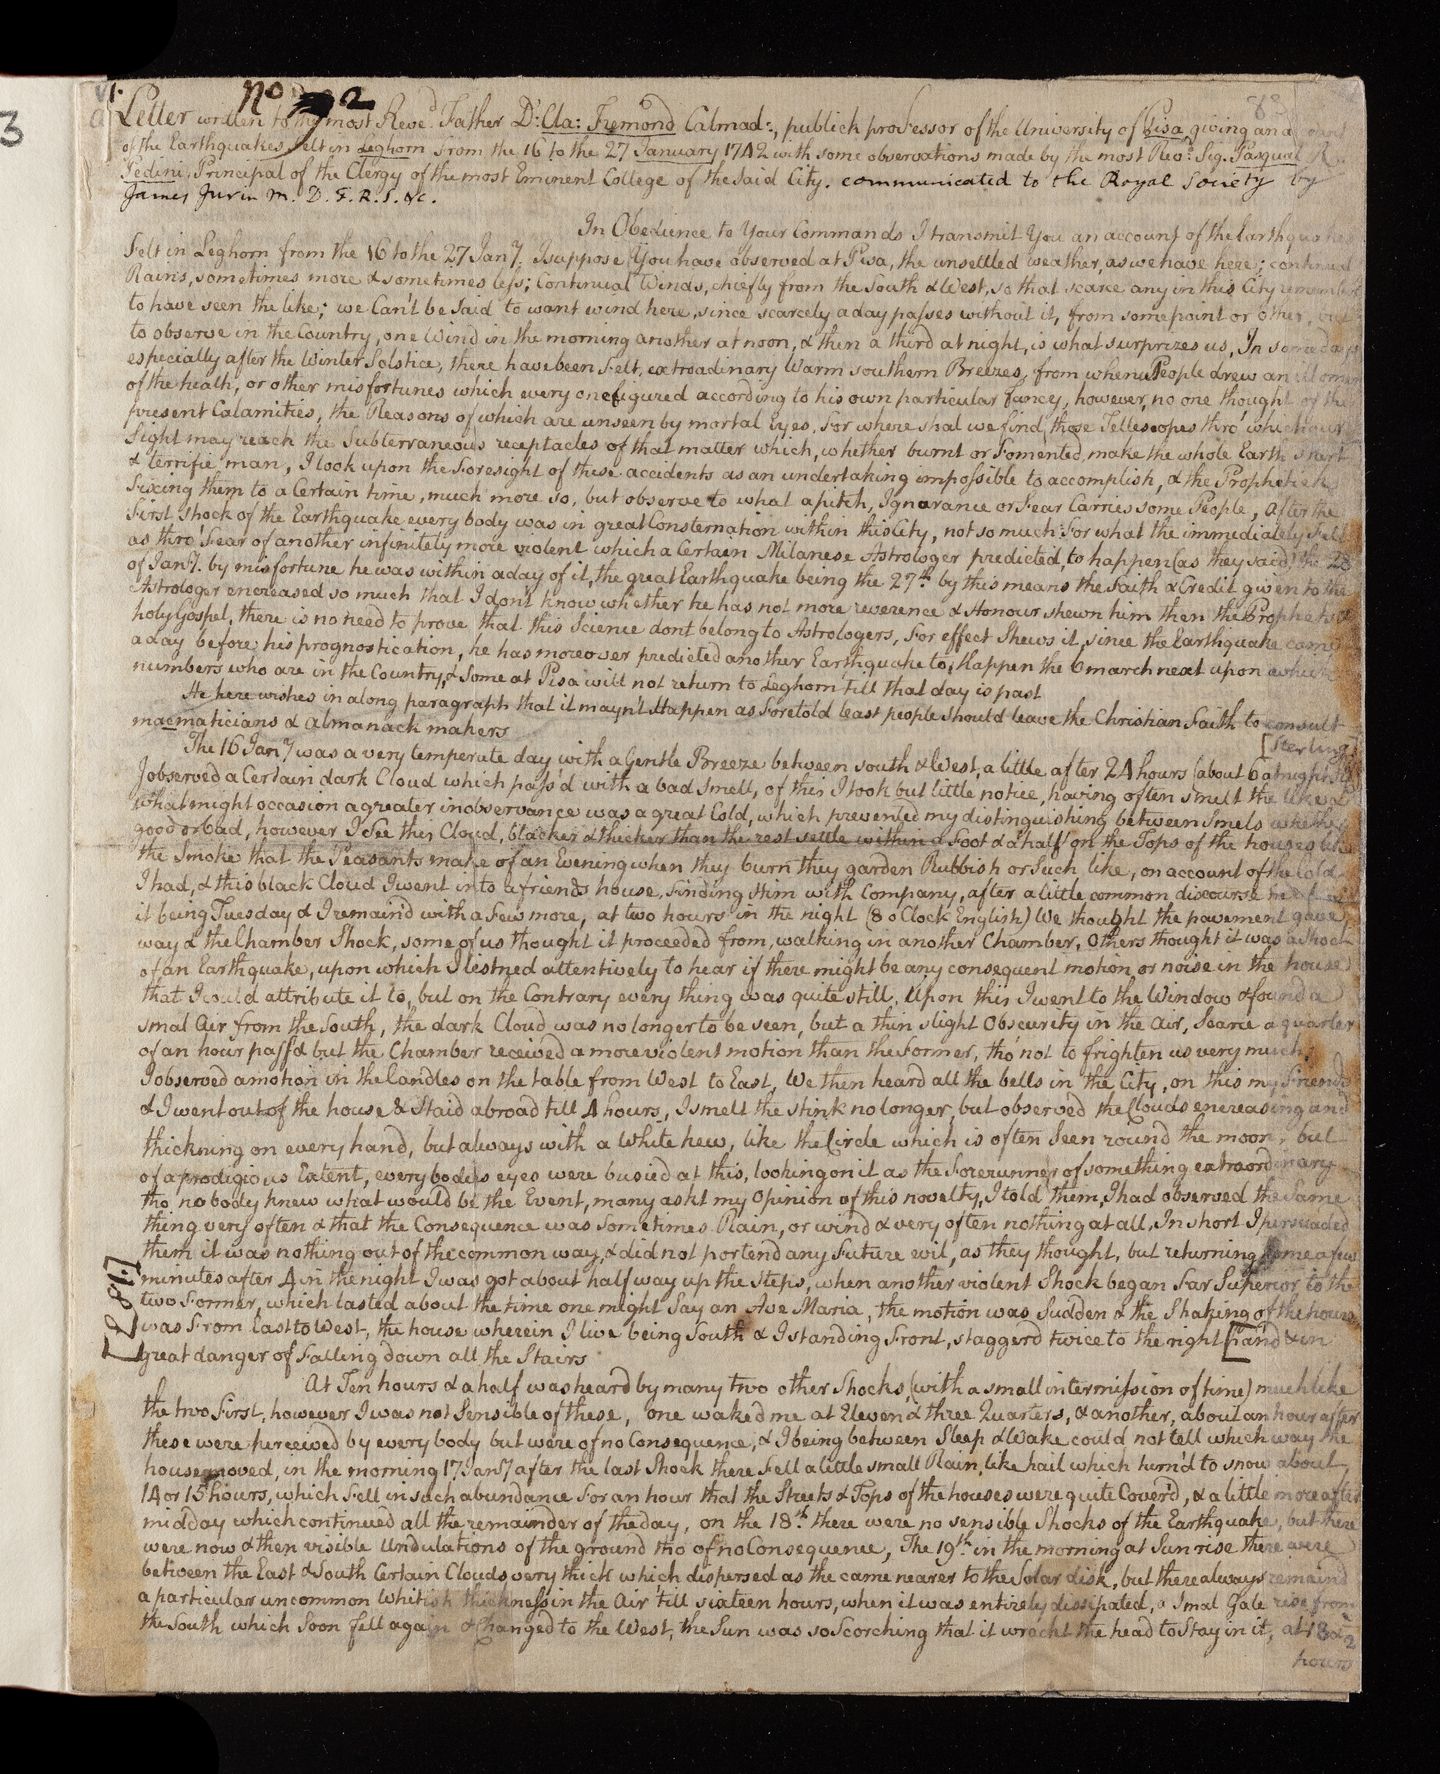 3
83
VI.
No 2
A Letter written to the most Reved. Father Dn: Cla: Fremond Calmad:, publick professor of the University of Pisa giving an account
of the Earthquakes felt in Leghorn from the 16 to the 27 January 1742 with some observations made by the most Revd. Sig. Pasqual R.
Pedini, Principal of the Clergy of the most Eminent College of the said City. communicated to the Royal Society by
James Jurin M. D. F. R. S. &c.
In Obedience to Your Commands I transmit You an account of the Earthquakes
felt in Leghorn from the 16 to the 27 Jany. I suppose You have observed at Pisa, the unsettled weather, as we have here; continual
Rains, sometimes more & sometimes less; Continual Winds, chiefly from the South & West, so that scarce any in this City remember
to have seen the like; we Can't be Said to want wind here, since scarcely a day passes without it, from some point or other, but
to observe in the Country, one Wind in the morning another at noon, & then a third at night, is what surprizes us, In some days
especially after the Winter Solstice, there have been felt, extroadinary Warm Southern Breezes, from whence People drew an ill omen
of the heath, or other misfortunes which every one figured according to his own particular fancy, however, no one thought of the
present Calamities, the Reasons of which are unseen by mortal Eyes, For where shal we find those Tellescopes thrô which our
Sight may reach the Subterraneous receptacles of that matter which, whether burnt or Fomented, make the whole Earth
& terrifie man, I look upon the Foresight of these accidents as an undertaking impossible to accomplish, & the Prophetick
fixing them to a Certain time, much more so, but observe to what a pitch, Ignorance or Fear Carries some People, After the
first shock of the Earthquake every body was in great Consternation within this City, not so much For what the immediately felt
as thrô Fear of another infinitely more violent which a Certain Milanese Astrologer predicted, to happen (as they said) the 28
of Jany. by misfortune he was within a day of it, the great Earthquake being the 27th. by this means the Faith & Credit given to the
Astrologer encreased so much that I dont know whether he has not more reverence & Honour shewn him then the Prophets &
holy Gospel, there is no need to prove that this Science dont belong to Astrologers, for effect Shews it, since the Earthquake came
a day before, his prognostication, he has moreover predicted another Earthquake to Happen the 6 march next upon which
numbers who are in the Country, & Some at Pisa will not return to Leghorn till that day is past
He here wishes in a long paragraph that it mayn't Happen as Foretold least people should leave the Christian Faith to consult
maematicians & almanack makers
[Sterling]
The 16 Jany was a very temperate day with a Gentle Breeze between South & West, a little after 24 hours (about 6 at night
I observed a Certain dark Cloud which pass'd with a bad Smell, of this I took but little notice, having often smelt the like &
what might occasion a greater inobservance was a great Cold, which prevented my distinguishing between Smels whether
good or bad, however I See this Cloud, blacker & thicker than the rest settle within a Foot & a half on the Tops of the houses like
the Smoke that the Peasants make of an Evening when they burn they garden Rubbish or Such like, on account of the Cold
I had, & this black Cloud I went into a friends house, Finding Him with Company, after a little common discourse
it being Tuesday & I remain'd with a Few more, at two hours in the night (8 o Clock English) We thought the pavement gave
way & the Chamber Shock, some of us thought it proceeded from, walking in another Chamber, Others thought it was a Shock
of an Earthquake, upon which I listned attentively to hear if there might be any consequent motion, or noise in the house
that I could attribute it to, but on the Contrary every thing was quite still, Upon this I went to the Window & found a
smal Air from the South, the dark Cloud was no longer to be seen, but a thin slight Obscurity in the air, Scarce a quarter
of an hour pass'd but the Chamber received a more violent motion than the Former, tho' not to frighten us very much,
I observed a motion in the Candles on the table from West to East, We then heard all the bells in the City, on this my Friend
& I went out of the house & Staid abroad till 4 hours, I smelt the stink no longer, but observed the Clouds encreasing and
thickning on every hand, but always with a White hew, like the Circle which is often Seen round the moon, but
of a prodigious Extent, every bodys eyes were busied at this, looking on it as the Forerunner of something extraordinary
tho, no body knew what would be the Event, many askt my Opinion of this novelty, I told them, I had observed the Same
thing very often & that the Consequence was Sometimes Rain, or wind & very often nothing at all, In short I persuaded
them it was nothing out of the common way, & did not portend any Future evil, as they thought, but returning home a few
minutes after 4 in the night I was got about half way up the Steps, when another violent Shock began Far Superior to the
two Former, which lasted about the time one might Say an Ave Maria, the motion was Sudden & the Shaking of the house
[L 81.]
was From East to West, the house wherein I live being South & I standing Front, staggerd twice to the right [hand & in
great danger of Falling down all the Stairs
At Ten hours & a half was heard by many two other Shocks, (with a small intermission of time) much like
the two First, however I was not Sensible of these, one waked me at Eleven & three Quarters, & another, about an hour after
these were perceived by every body but were of no Consequence, & I being between Sleep & Wake could not tell which way the
house moved, in the morning 17 Jany after the last Shock there Fell a little small Rain, like hail which turn'd to snow about
14 or 15 hours, which Fell in such abundance For an hour that the Streets & Tops of the houses were quite Cover'd, & a little more after
midday which continued all the remainder of the day, on the 18th. there were no sensible Shocks of the Earthquake, but there
were now & then visible Undulations of the ground tho of no Consequence, The 19th. in the morning at Sun rise there were
between the East & South Certain Clouds very thick which dispersed as the came nearer to the Solar disk, but there always remaind
a particular uncommon Whitish thickness in the Air 'till sixteen hours, when it was entirely dissipated, a Smal Gale rise from
the South which Soon fell again & Changed to the West, the Sun was so Scorching that it wrockt the head to Stay in it, at 18 & 1/2
hours